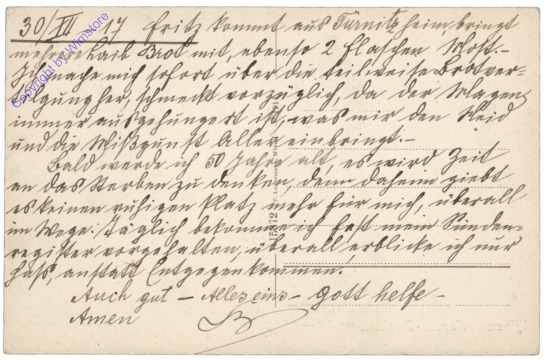 30/VII 17 Fritz kommt aus Türnitz heim, bringt
mehrere Laib Brot mit, ebenso 2 Flaschen Most.-
Ich mache mich sofort über die teilweise Brotver-
tilgung her, schmeckt vorzüglich, da der Magen
immer ausgehungert ist, was mir den Neid
und die Mißgunst Aller einbringt.-
Bald werde ich 50 Jahre alt, es wird Zeit
an das Sterben zu denken, denn daheim giebt
es keinen ruhigen Platz mehr für mich, überall
im Wege. Täglich bekomme ich fast mein Sünden-
register vorgehalten, überall erblicke ich nur
Haß, anstatt Entgegenkommen.
Auch gut - Alles eins - Gott helfe -
Amen
Copyright by Whmstore